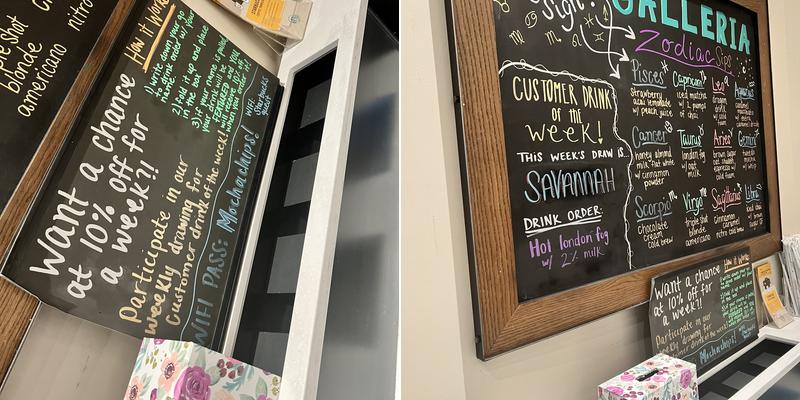 Shot
blonde
americano
nitro
Want a chance
at 10% off for
a week?!
Participate in our
weekly drawing for
Customer drink of the week!
WIFI PASS: Mochachips!
How it works
1) write down your go
to drink order w/ your
name
2) fold it up and place
in the box
3) if your name is pulled
your drink will be
FEATURED and YOU
when you order it!
WIFI:
Starbucks
guest
Sign!
GALLERIA
Zodiac Sips
CUSTOMER DRINK
OF the
week!
THIS WEEK'S DRAW IS...
SAVANNAH
DRINK ORDER:
Hot london fog
w/ 2% milk
Pisces
strawberry
acai lemonade
w/ peach juice
Capricorn
iced matcha
w/ 2 pumps
of chai
Leo
dragon
drink
w/ cold
foam
Aquarius
Cancer
honey almond
milk flat white
w/ cinnamon
powder
Taurus
london fog
w/ oat
milk
Aries
brown sugar
oat shaken
espresso w/
cold foam
Gemini
Scorpio
chocolate
cream
cold brew
Virgo
triple shot
blonde
americano
Sagittarius
cinnamon
caramel
nitro cold brew
Libra
iced chai
w/ brown
sugar
Want a chance
at 10% off for
a week?!
Participate in our
weekly drawing for
Customer drink of the week!
Mochachips!
How it works